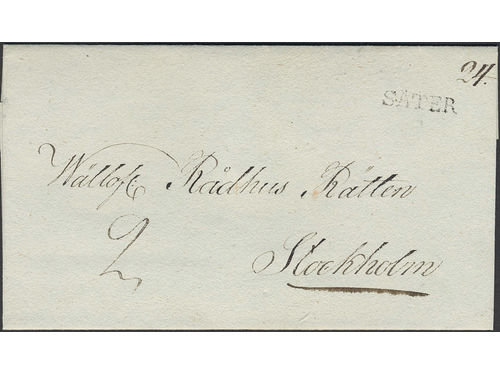 24.
SÄTER
Wällofl. Rådhus Rätten
2
Stockholm